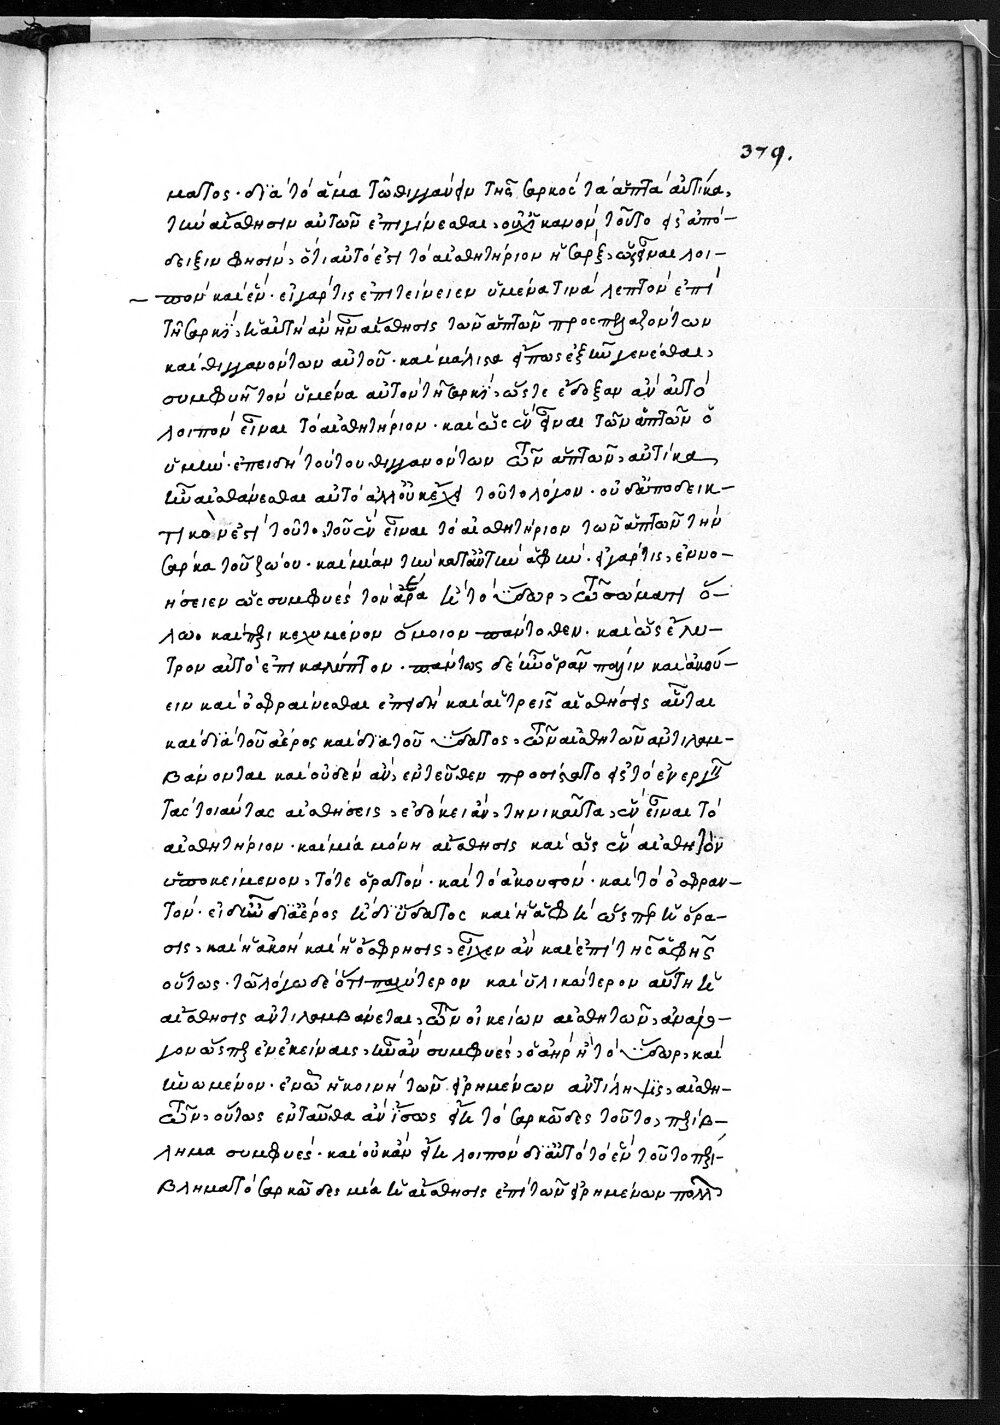 379.
ματος· διὰ τὸ ἅμα τῷ θιγγάνειν τῆς σαρκὸς τὰ ἁπτὰ αὐτίκα,
τὴν αἴσθησιν αὐτῶν ἐπιγίνεσθαι, οὐχ ἱκανὸν τοῦτο εἰς ἀπό–
δειξιν φησὶν, ὅτι αὐτό ἐστι τὸ αἰσθητήριον ἡ σὰρξ, ὡς εἶναι λοι–
πὸν καὶ ἕν· εἰ γάρ τις ἐπιτείνειεν ὑμένα τινὰ λεπτὸν ἐπὶ
τῇ σαρκὶ, ἡ αὐτὴ ἂν ἦν αἴσθησις τῶν ἁπτῶν προσπελαζόντων
καὶ θιγγανόντων αὐτοῦ· καὶ μάλιστα εἴπως ἐξῆν γενέσθαι,
συμφυῆ τὸν ὑμένα αὐτὸν τῇ σαρκὶ, ὥστε ἔδοξαν ἂν αὐτὸ
λοιπὸν εἶναι τὸ αἰσθητήριον· καὶ ὡς ἓν εἶναι τῶν ἁπτῶν ὁ
ὑμὴν· ἐπειδὴ τούτου θιγγανόντων τῶν ἁπτῶν, αὐτίκα
ἦν αἰσθάνεσθαι αὐτὸ ἀλλ' οὐκ ἔχει τοῦτο λόγον· οὐδ' ἀποδεικ–
τικὸν ἐστὶ τοῦτο, τοῦ ἓν εἶναι τὸ αἰσθητήριον τῶν ἁπτῶν τὴν
σάρκα τοῦ ζώου· καὶ μίαν τὴν κατ' αὐτὴν ἁφὴν· εἰ γάρ τις, ἐννο–
ήσειεν ὡς συμφυὲς τὸν ἀέρα ἢ τὸ ὕδωρ, τῷ σώματι ὅ–
λῳ καὶ περικεχυμένον ὅμοιον πάντοθεν· καὶ ὡς ἔλυ–
τρον αὐτὸ ἐπικαλύπτον· πάντως δὲ ἦν ὁρᾶν πάλιν καὶ ἀκού–
ειν καὶ ὀσφραίνεσθαι ἐπειδὴ καὶ αἱ τρεῖς αἰσθήσεις αὗται
καὶ διὰ τοῦ ἀέρος καὶ διὰ τοῦ ὕδατος, τῶν αἰσθητῶν ἀντιλαμ–
βάνονται καὶ οὐδὲν ἂν, ἐντεῦθεν προσίστατο εἰς τὸ ἐνεργεῖν
τὰς τοιαύτας αἰσθήσεις, ἐδόκει ἂν, τηνικαῦτα, ἓν εἶναι τὸ
αἰσθητήριον· καὶ μία μόνη αἴσθησις καὶ ὡς ἓν αἰσθητὸν
ὑποκείμενον, τότε ὁρατὸν· καὶ τὸ ἀκουστὸν· καὶ τὸ ὀσφραν–
τόν· εἰ δ' ἦν δι' ἀέρος ἢ δι' ὕδατος καὶ ἡ ἁφὴ ὥσπερ ἡ ὅρα–
σις, καὶ ἡ ἀκοὴ καὶ ἡ ὄσφρησις, εἶχεν ἂν καὶ ἐπὶ τῆς ἁφῆς
οὕτως· τῷ λόγῳ δὲ ὅτι παχύτερον καὶ ὑλικώτερον αὕτη ἡ
αἴσθησις ἀντιλαμβάνεται, τῶν οἰκείων αἰσθητῶν, ἀνάλο–
γον ὥσπερ ἐν ἐκείναις, ἦν ἂν συμφυὲς, ὁ ἀὴρ ἢ τὸ ὕδωρ, καὶ
ἡνωμένον· ἐν ᾧ ἡ κοινὴ τῶν εἰρημένων ἀντίληψις, αἰσθη–
τῶν, οὕτως ἐνταῦθα ἂν ἴσως εἴη τὸ σαρκῶδες τοῦτο, περίβ–
λημα συμφυὲς· καὶ οὐκ ἂν εἴη λοιπὸν δι' αὐτὸ τὸ ἓν τοῦτο περί–
βλημα τὸ σαρκῶδες μία ἡ αἴσθησις ἐπὶ τῶν εἰρημένων πολλ